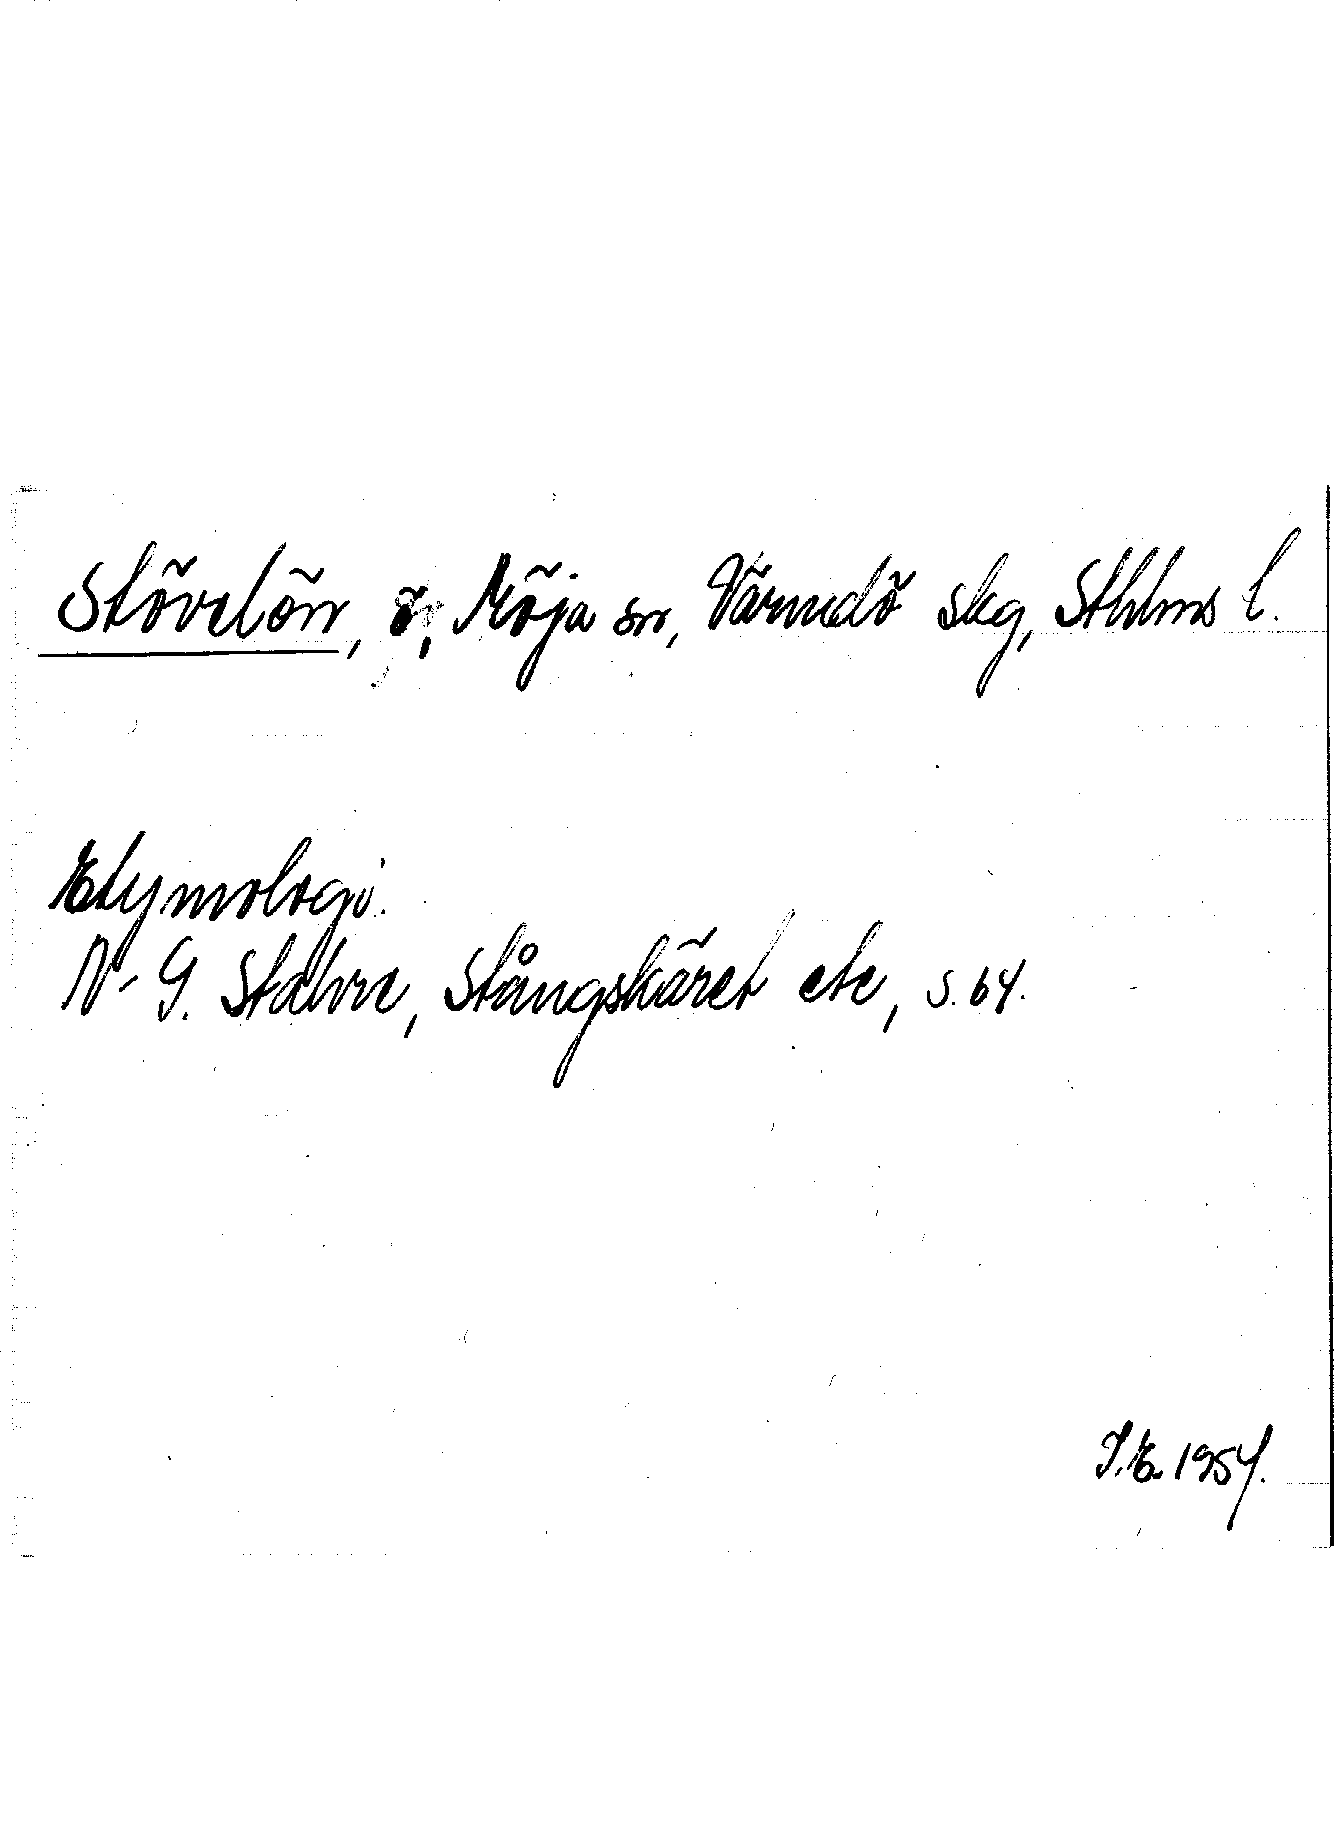 Stövelön, ö, Möja sn, Värmdö skg, Sthlms l.
Etymologi.
N-G. Stahre, Stångskäret etc, s. 64.
I.E. 1954.